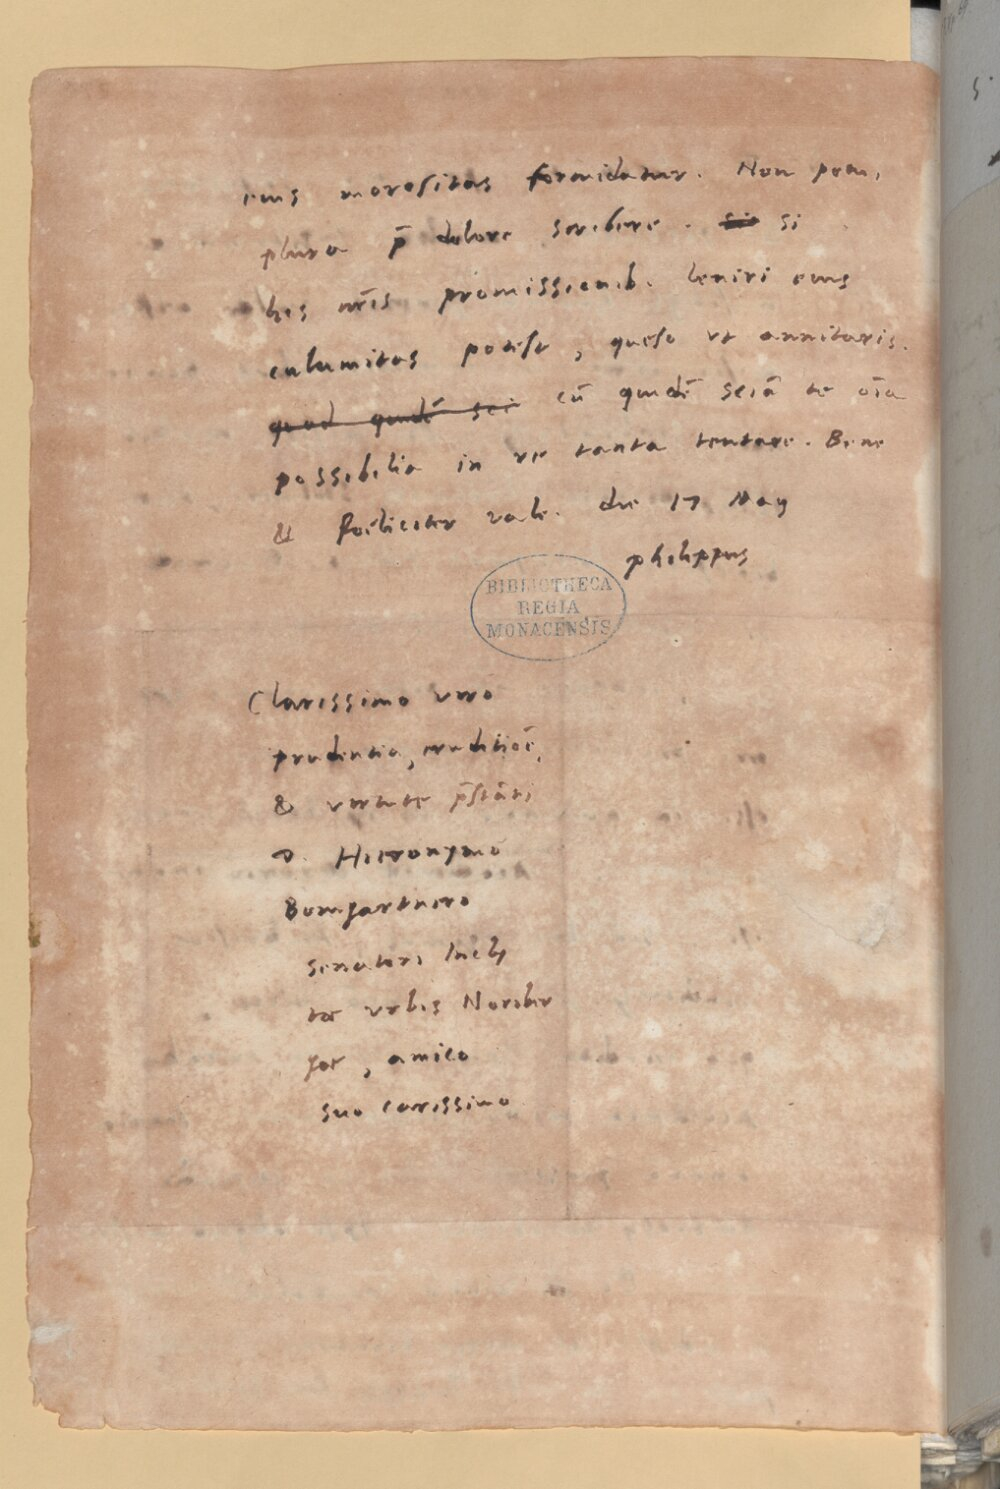 eius morositas formidatur. Non potui
plura p̄ dolore scribere. si si
his nr̄is promissionib. leniri eius
calamitas potest, queso vt annitaris.
quod quidē sci cū quidē sciā te oīa
possibilia in re tanta tentare. Bene
& foeliciter vale. die 17 May
philippus
BIBLIOTHECA
REGIA
MONACENSIS
Clarissimo viro
prudentia, eruditiōē,
& virtute p̄stāti
D. Hieronymo
Bomgartnero
senatori Incly
tæ vrbis Noriber
gæ, amico
suo carissimo